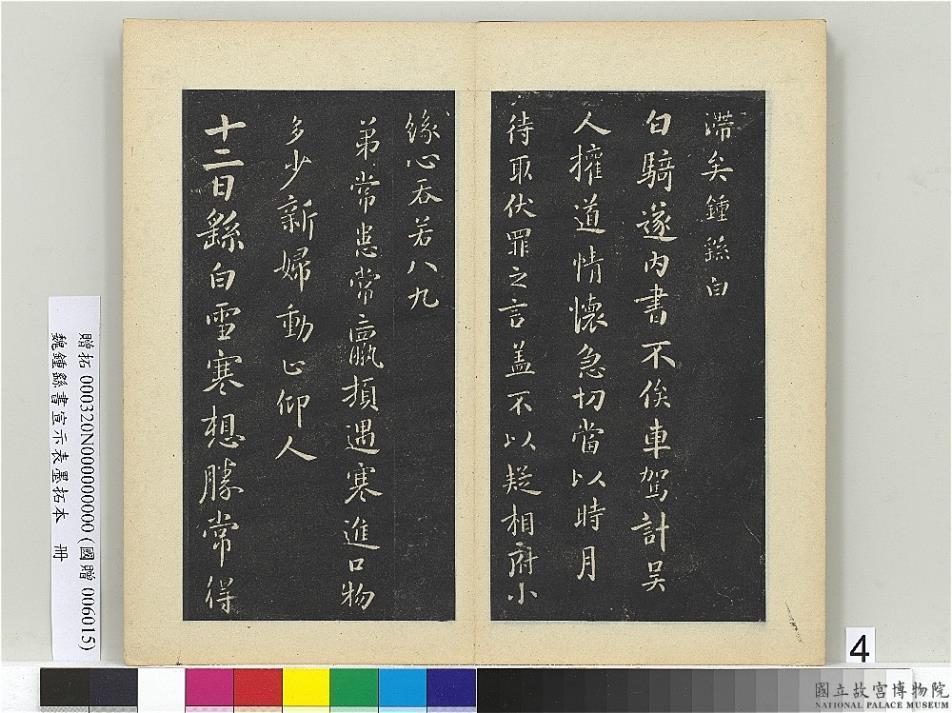 滯矣鍾繇白
白騎遂內書不俟車駕計吴
人擁道情懷急切當以時月
待取伏罪之言盖不以疑相府小
緣心吞若八九
弟常患常羸頓遇寒進口物
多少新婦動止仰人
十二日繇白雪寒想勝常得
贈拓 000320N000000000 (國贈 006015)
魏鍾繇書宣示表墨拓本 冊
4
國立故宮博物院
NATIONAL PALACE MUSEUM